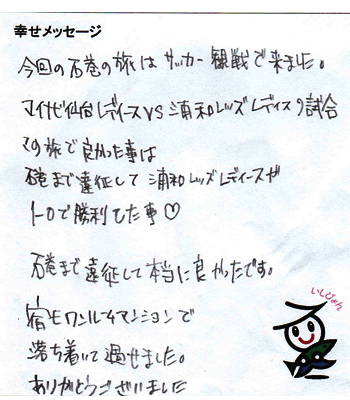 幸せメッセージ
今回の石巻の旅は サッカー観戦で来ました。
マイナビ仙台レディースVS浦和レッズレディスの試合
この旅で良かった事は
石巻まで遠征して 浦和レッズレディースが
1-0で勝利した事♡
石巻まで遠征して本当に良かったです。
宿もワンルームマンションで
落ち着いて過せました。
ありがとうございました
いしぴょん